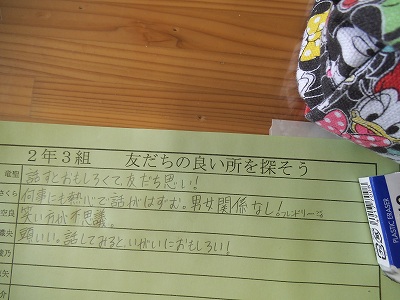 2年3組　友だちの良い所を探そう
竜聖 話すとおもしろくて、友だち思い!
さくら 何事にも熱心で話がはずむ。男女関係なし!フレンドリーな
空良 笑い方が不思議。
頭いい。話してみると、いがいにおもしろい!
PLASTIC ERASER